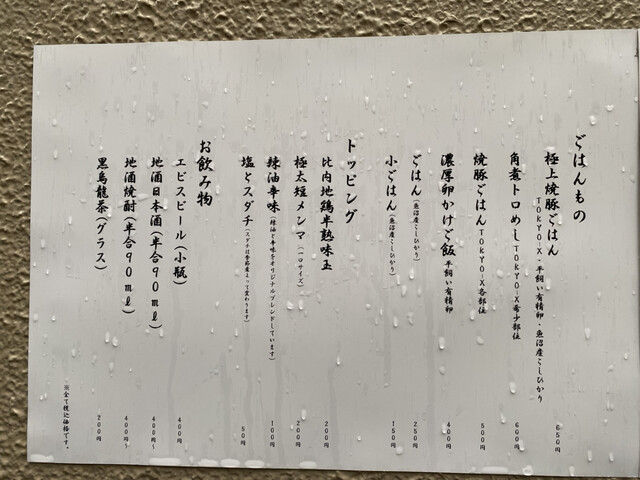 ごはんもの
極上焼豚ごはん
TOKYO-X・平飼い有精卵・魚沼産こしひかり
650円
角煮トロめし TOKYO-X希少部位
600円
焼豚ごはん TOKYO-X各部位
500円
濃厚卵かけご飯 平飼い有精卵
400円
ごはん(魚沼産こしひかり)
250円
小ごはん(魚沼産こしひかり)
150円
トッピング
比内地鶏半熟味玉
200円
極太短メンマ(一口サイズ)
200円
辣油辛味(辣油と辛味をオリジナルブレンドしています)
100円
塩とスダチ(スダチは季節産によって変わります)
50円
お飲み物
エビスビール(小瓶)
400円
地酒日本酒(半合90ml)
400円~
地酒焼酎(半合90ml)
400円~
黒烏龍茶(グラス)
200円
※全て税込価格です。